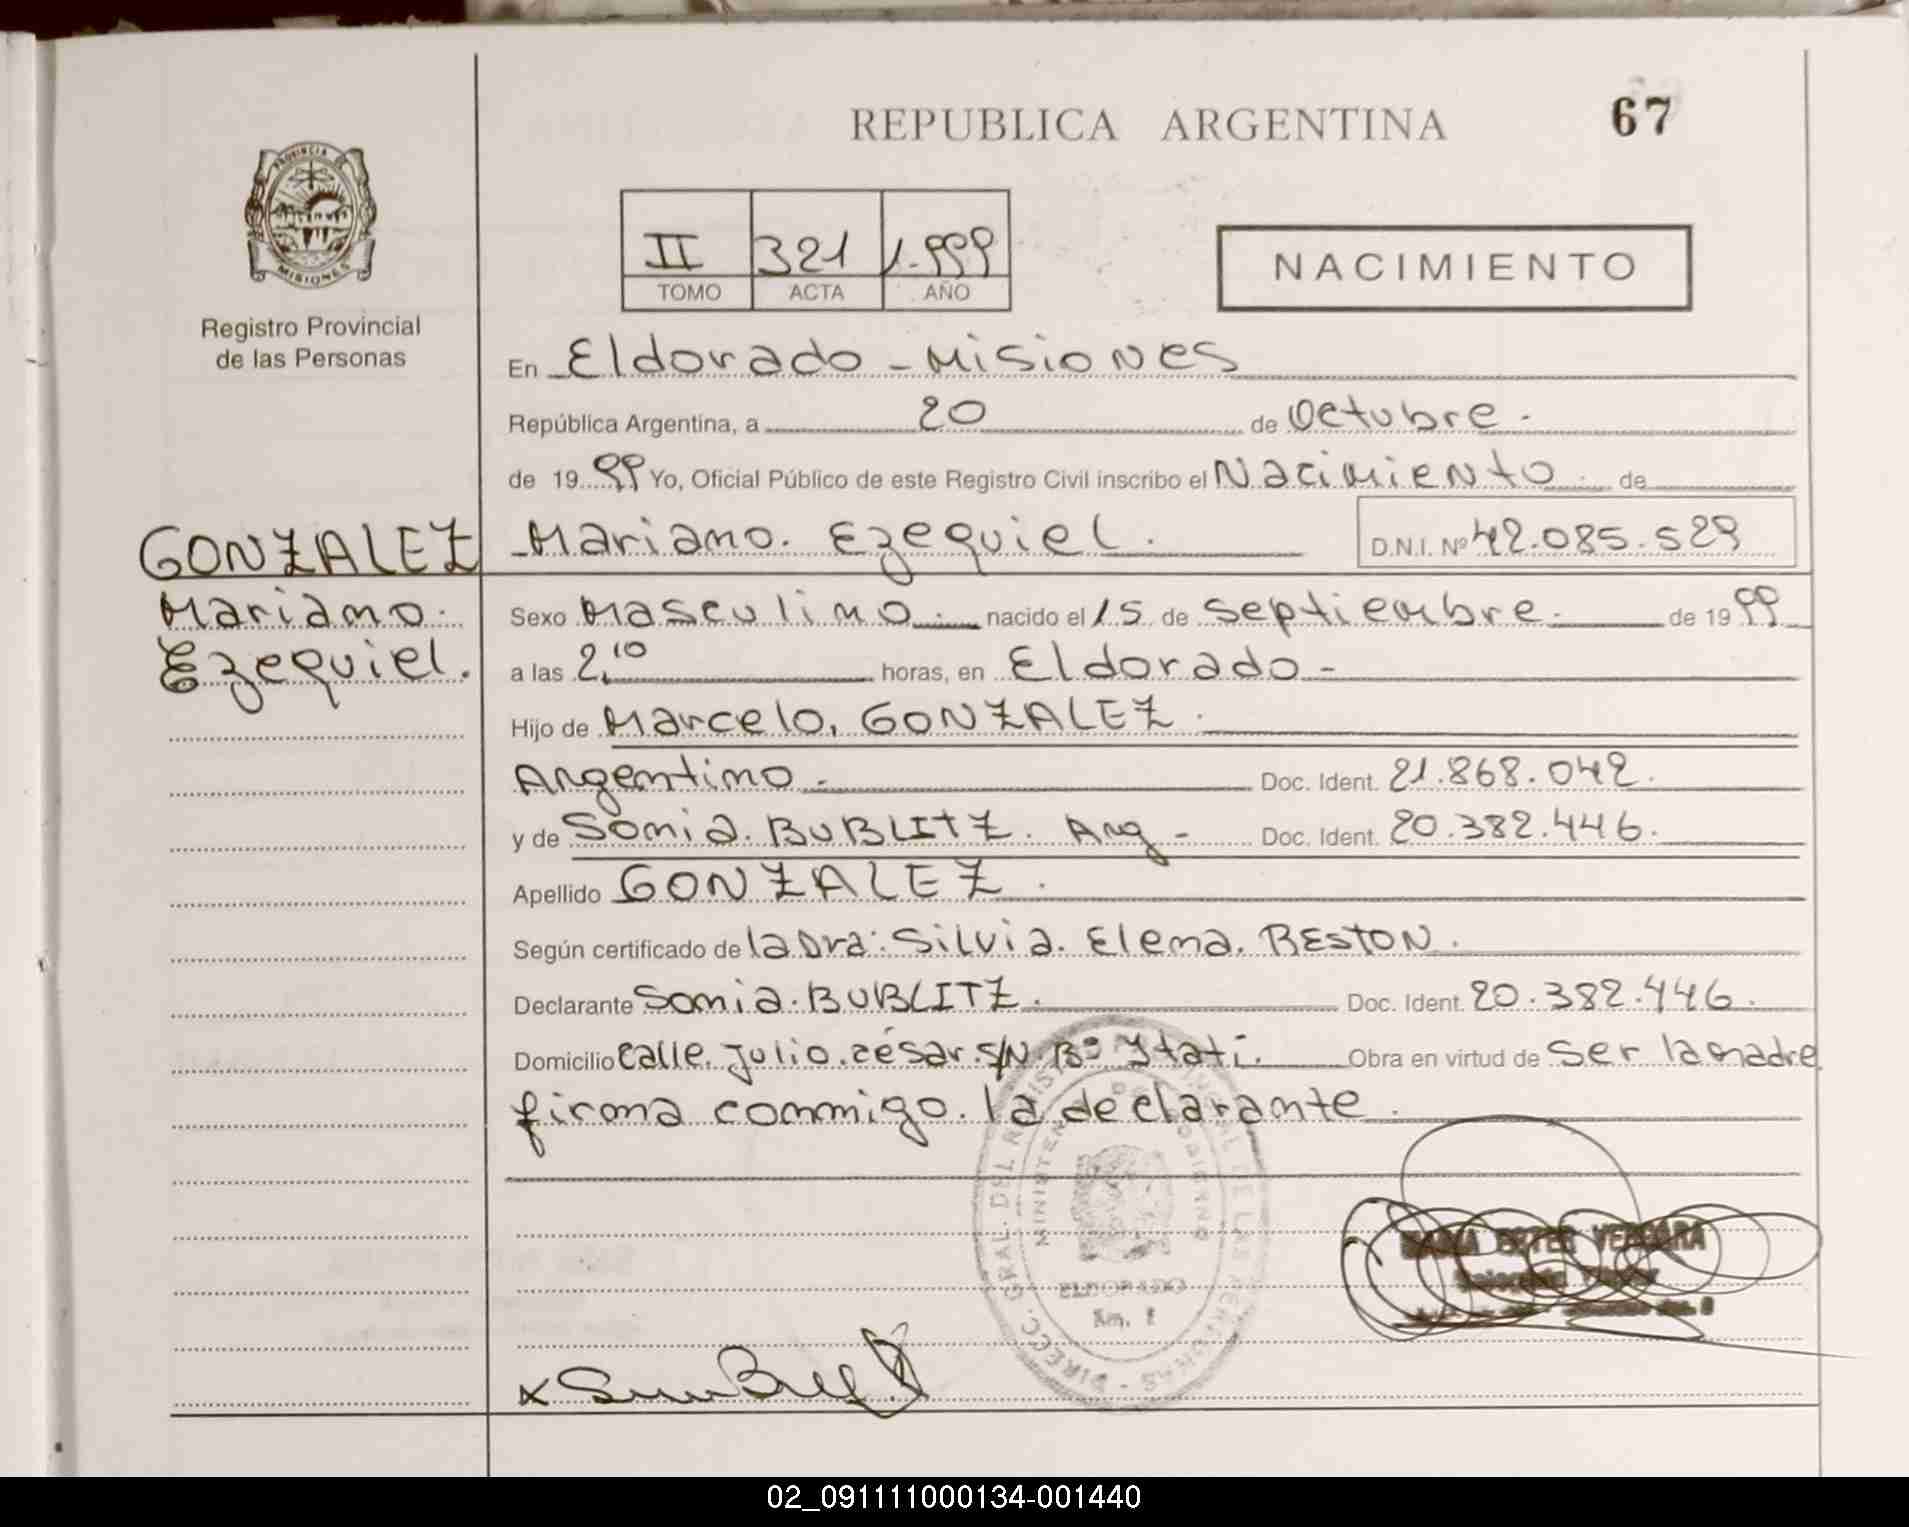 REPUBLICA ARGENTINA
67
PROVINCIA DE
MISIONES
Registro Provincial
de las Personas
II 321 1.999
TOMO ACTA AÑO
NACIMIENTO
En Eldorado - Misiones
República Argentina, a 20 de Octubre.
de 1999 Yo, Oficial Público de este Registro Civil inscribo el Nacimiento. de
GONZALEZ
Mariano.
Ezequiel.
Mariano. Ezequiel. D.N.I. Nº 42.085.529
Sexo Masculino. nacido el 15 de Septiembre. de 1999
a las 2,10 horas, en Eldorado -
Hijo de Marcelo, GONZALEZ.
Argentino. Doc. Ident. 21.868.042.
y de Sonia. BUBLITZ. Arg - Doc. Ident. 20.382.446.
Apellido GONZALEZ.
Según certificado de la Dra: Silvia. Elena. RESTON.
Declarante Sonia. BUBLITZ. Doc. Ident. 20.382.446.
Domicilio Calle. Julio. césar. S/N. Bº Ytatí. Obra en virtud de Ser la madre
firma conmigo. la declarante.
DIRECC. GRAL. DEL REGISTRO PROVINCIAL DE LAS PERSONAS
ELDORADO
Km.
MARIA ESTER VERGARA
x
02_091111000134-001440